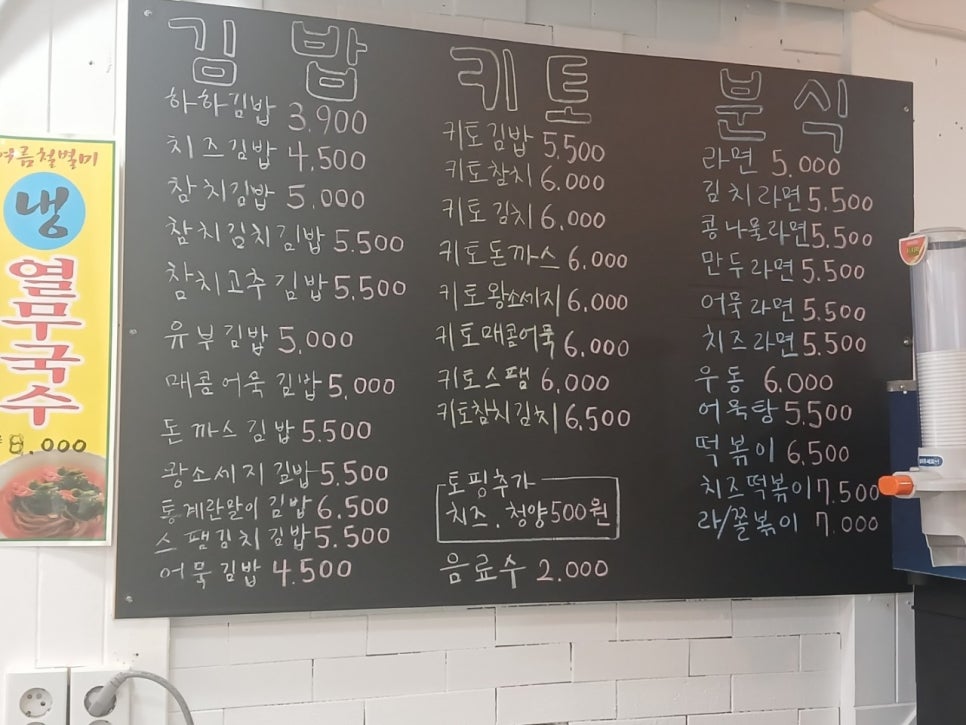 여름철별미
냉
열무국수
8,000
김밥
하하김밥 3.900
치즈김밥 4,500
참치김밥 5,000
참치김치김밥 5.500
참치고추김밥 5,500
유부김밥 5,000
매콤어묵김밥 5,000
돈까스김밥 5.500
왕소세지김밥 5.500
통계란말이김밥 6.500
스팸김치김밥 5.500
어묵김밥 4.500
키토
키토김밥 5,500
키토참치 6.000
키토김치 6,000
키토돈까스 6,000
키토왕소세지 6,000
키토매콤어묵 6,000
키토스팸 6,000
키토참치김치 6,500
토핑추가
치즈. 청양500원
음료수 2.000
분식
라면 5.000
김치라면 5.500
콩나물라면 5.500
만두라면 5.500
어묵라면 5.500
치즈라면 5.500
우동 6.000
어묵탕 5.500
떡볶이 6,500
치즈떡볶이 7.500
라/쫄볶이 7.000